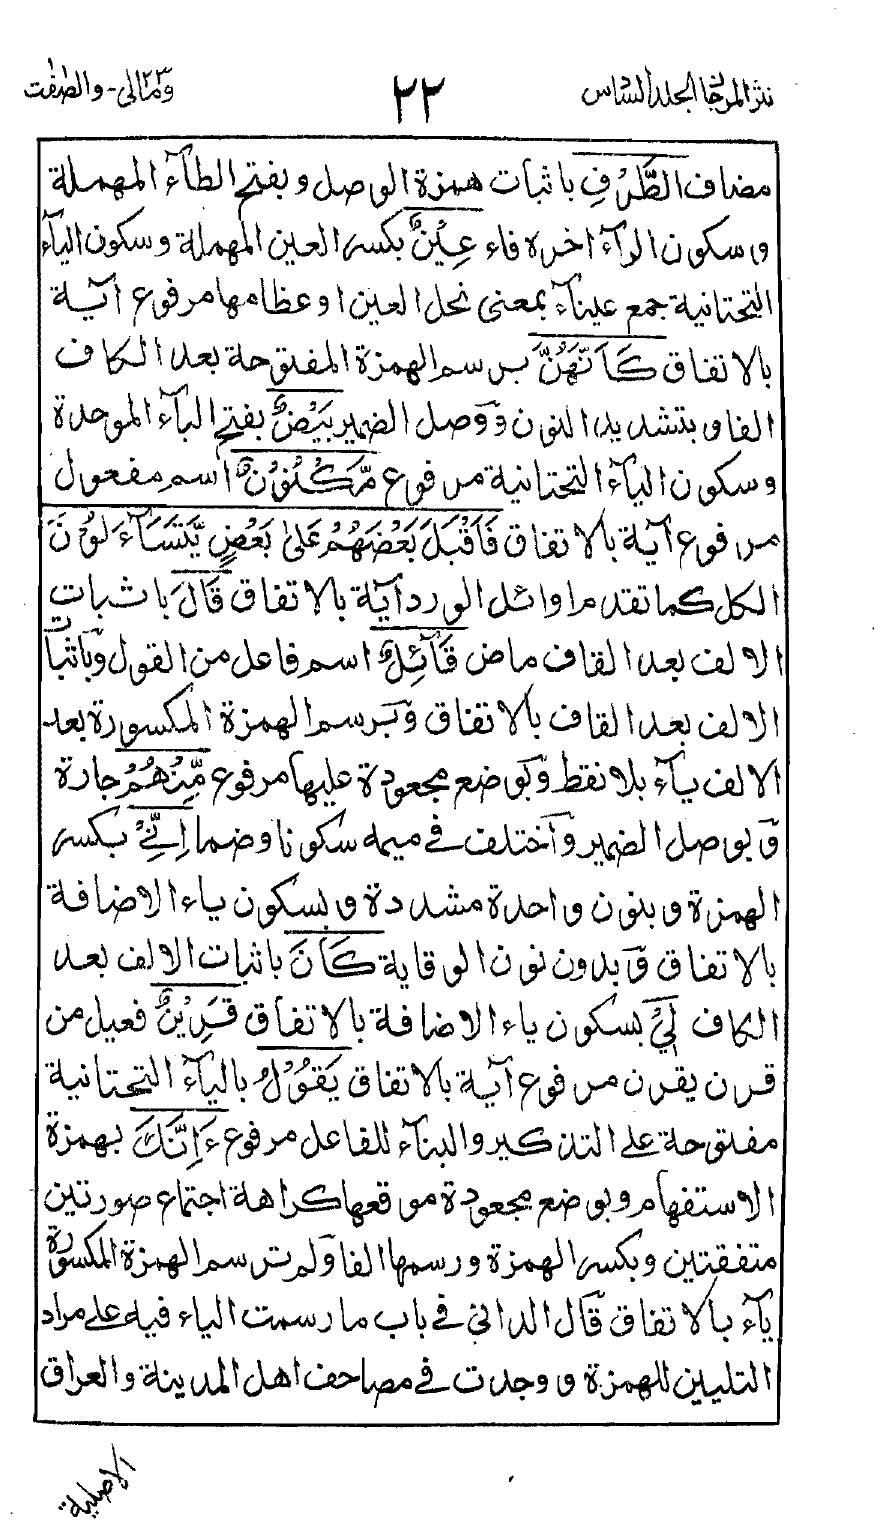 نثر المرجان الجلد السادس
٢٢
ومالى ٢٣ - والصّفّت
مضاف الطَّرْفِ باثبات همزة الوصل وبفتح الطآء المهملة
وسكون الرآء اخره فاء عِيْنٌ بكسر العين المهملة وسكون اليآء
التحتانية جمع عينآء بمعنى نجل العين اوعظامها مرفوع آية
بالاتفاق كَاَنَّهُنَّ برسم الهمزة المفتوحة بعد الكاف
الفا وبتشديد النون ووصل الضمير بَيْضٌ بفتح البآء الموحدة
وسكون اليآء التحتانية مرفوع مَّكْنُوْنٌ اسم مفعول
مرفوع آية بالاتفاق فَاَقْبَلَ بَعْضُهُمْ عَلٰى بَعْضٍ يَّتَسَآءَلُوْنَ
الكل كما تقدم اوائل الورد آية بالاتفاق قَالَ باثبات
الالف بعد القاف ماض قَآئِلٌ اسم فاعل من القول وباثبات
الالف بعد القاف بالاتفاق وبرسم الهمزة المكسورة بعد
الالف يآء بلا نقط وبوضع مجعودة عليها مرفوع مِّنْهُمْ جارة
وبوصل الضمير وآختلف في ميمه سكونا وضما اِنِّيْ بكسر
الهمزة وبنون واحدة مشددة وبسكون ياء الاضافة
بالاتفاق وبدون نون الوقاية كَانَ باثبات الالف بعد
الكاف لِيْ بسكون ياء الاضافة بالاتفاق قَرِيْنٌ فعيل من
قرن يقرن مرفوع آية بالاتفاق يَقُوْلُ باليآء التحتانية
مفتوحة على التذكير والبنآء للفاعل مرفوع ءَاِنَّكَ بهمزة
الاستفهام وبوضع مجعودة موقعها كراهة اجتماع صورتين
متفقتين وبكسر الهمزة ورسمها الفا ولم ترسم الهمزة المكسورة
يآء بالاتفاق قال الداني في باب ما رسمت الياء فيه على مراد
التليين للهمزة ووجدت في مصاحف اهل المدينة والعراق
الاصلية